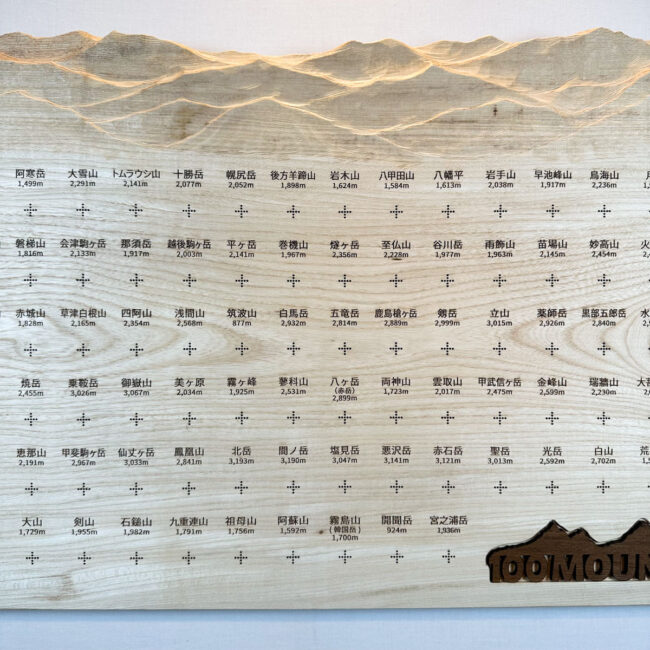 阿寒岳 大雪山 トムラウシ山 十勝岳 幌尻岳 後方羊蹄山 岩木山 八甲田山 八幡平 岩手山 早池峰山 鳥海山
1,499m 2,291m 2,141m 2,077m 2,052m 1,898m 1,624m 1,584m 1,613m 2,038m 1,917m 2,236m
磐梯山 会津駒ヶ岳 那須岳 越後駒ヶ岳 平ヶ岳 巻機山 燧ヶ岳 至仏山 谷川岳 雨飾山 苗場山 妙高山 火
1,816m 2,133m 1,917m 2,003m 2,141m 1,967m 2,356m 2,228m 1,977m 1,963m 2,145m 2,454m
赤城山 草津白根山 四阿山 浅間山 筑波山 白馬岳 五竜岳 鹿島槍ヶ岳 剱岳 立山 薬師岳 黒部五郎岳 水
1,828m 2,165m 2,354m 2,568m 877m 2,932m 2,814m 2,889m 2,999m 3,015m 2,926m 2,840m
焼岳 乗鞍岳 御嶽山 美ヶ原 霧ヶ峰 蓼科山 八ヶ岳 両神山 雲取山 甲武信ヶ岳 金峰山 瑞牆山 大
2,455m 3,026m 3,067m 2,034m 1,925m 2,531m (赤岳) 1,723m 2,017m 2,475m 2,599m 2,230m
2,899m
恵那山 甲斐駒ヶ岳 仙丈ヶ岳 鳳凰山 北岳 間ノ岳 塩見岳 悪沢岳 赤石岳 聖岳 光岳 白山 荒
2,191m 2,967m 3,033m 2,841m 3,193m 3,190m 3,047m 3,141m 3,121m 3,013m 2,592m 2,702m
大山 剣山 石鎚山 九重連山 祖母山 阿蘇山 霧島山 開聞岳 宮之浦岳
1,729m 1,955m 1,982m 1,791m 1,756m 1,592m (韓国岳) 924m 1,936m
1,700m
100 MOUN